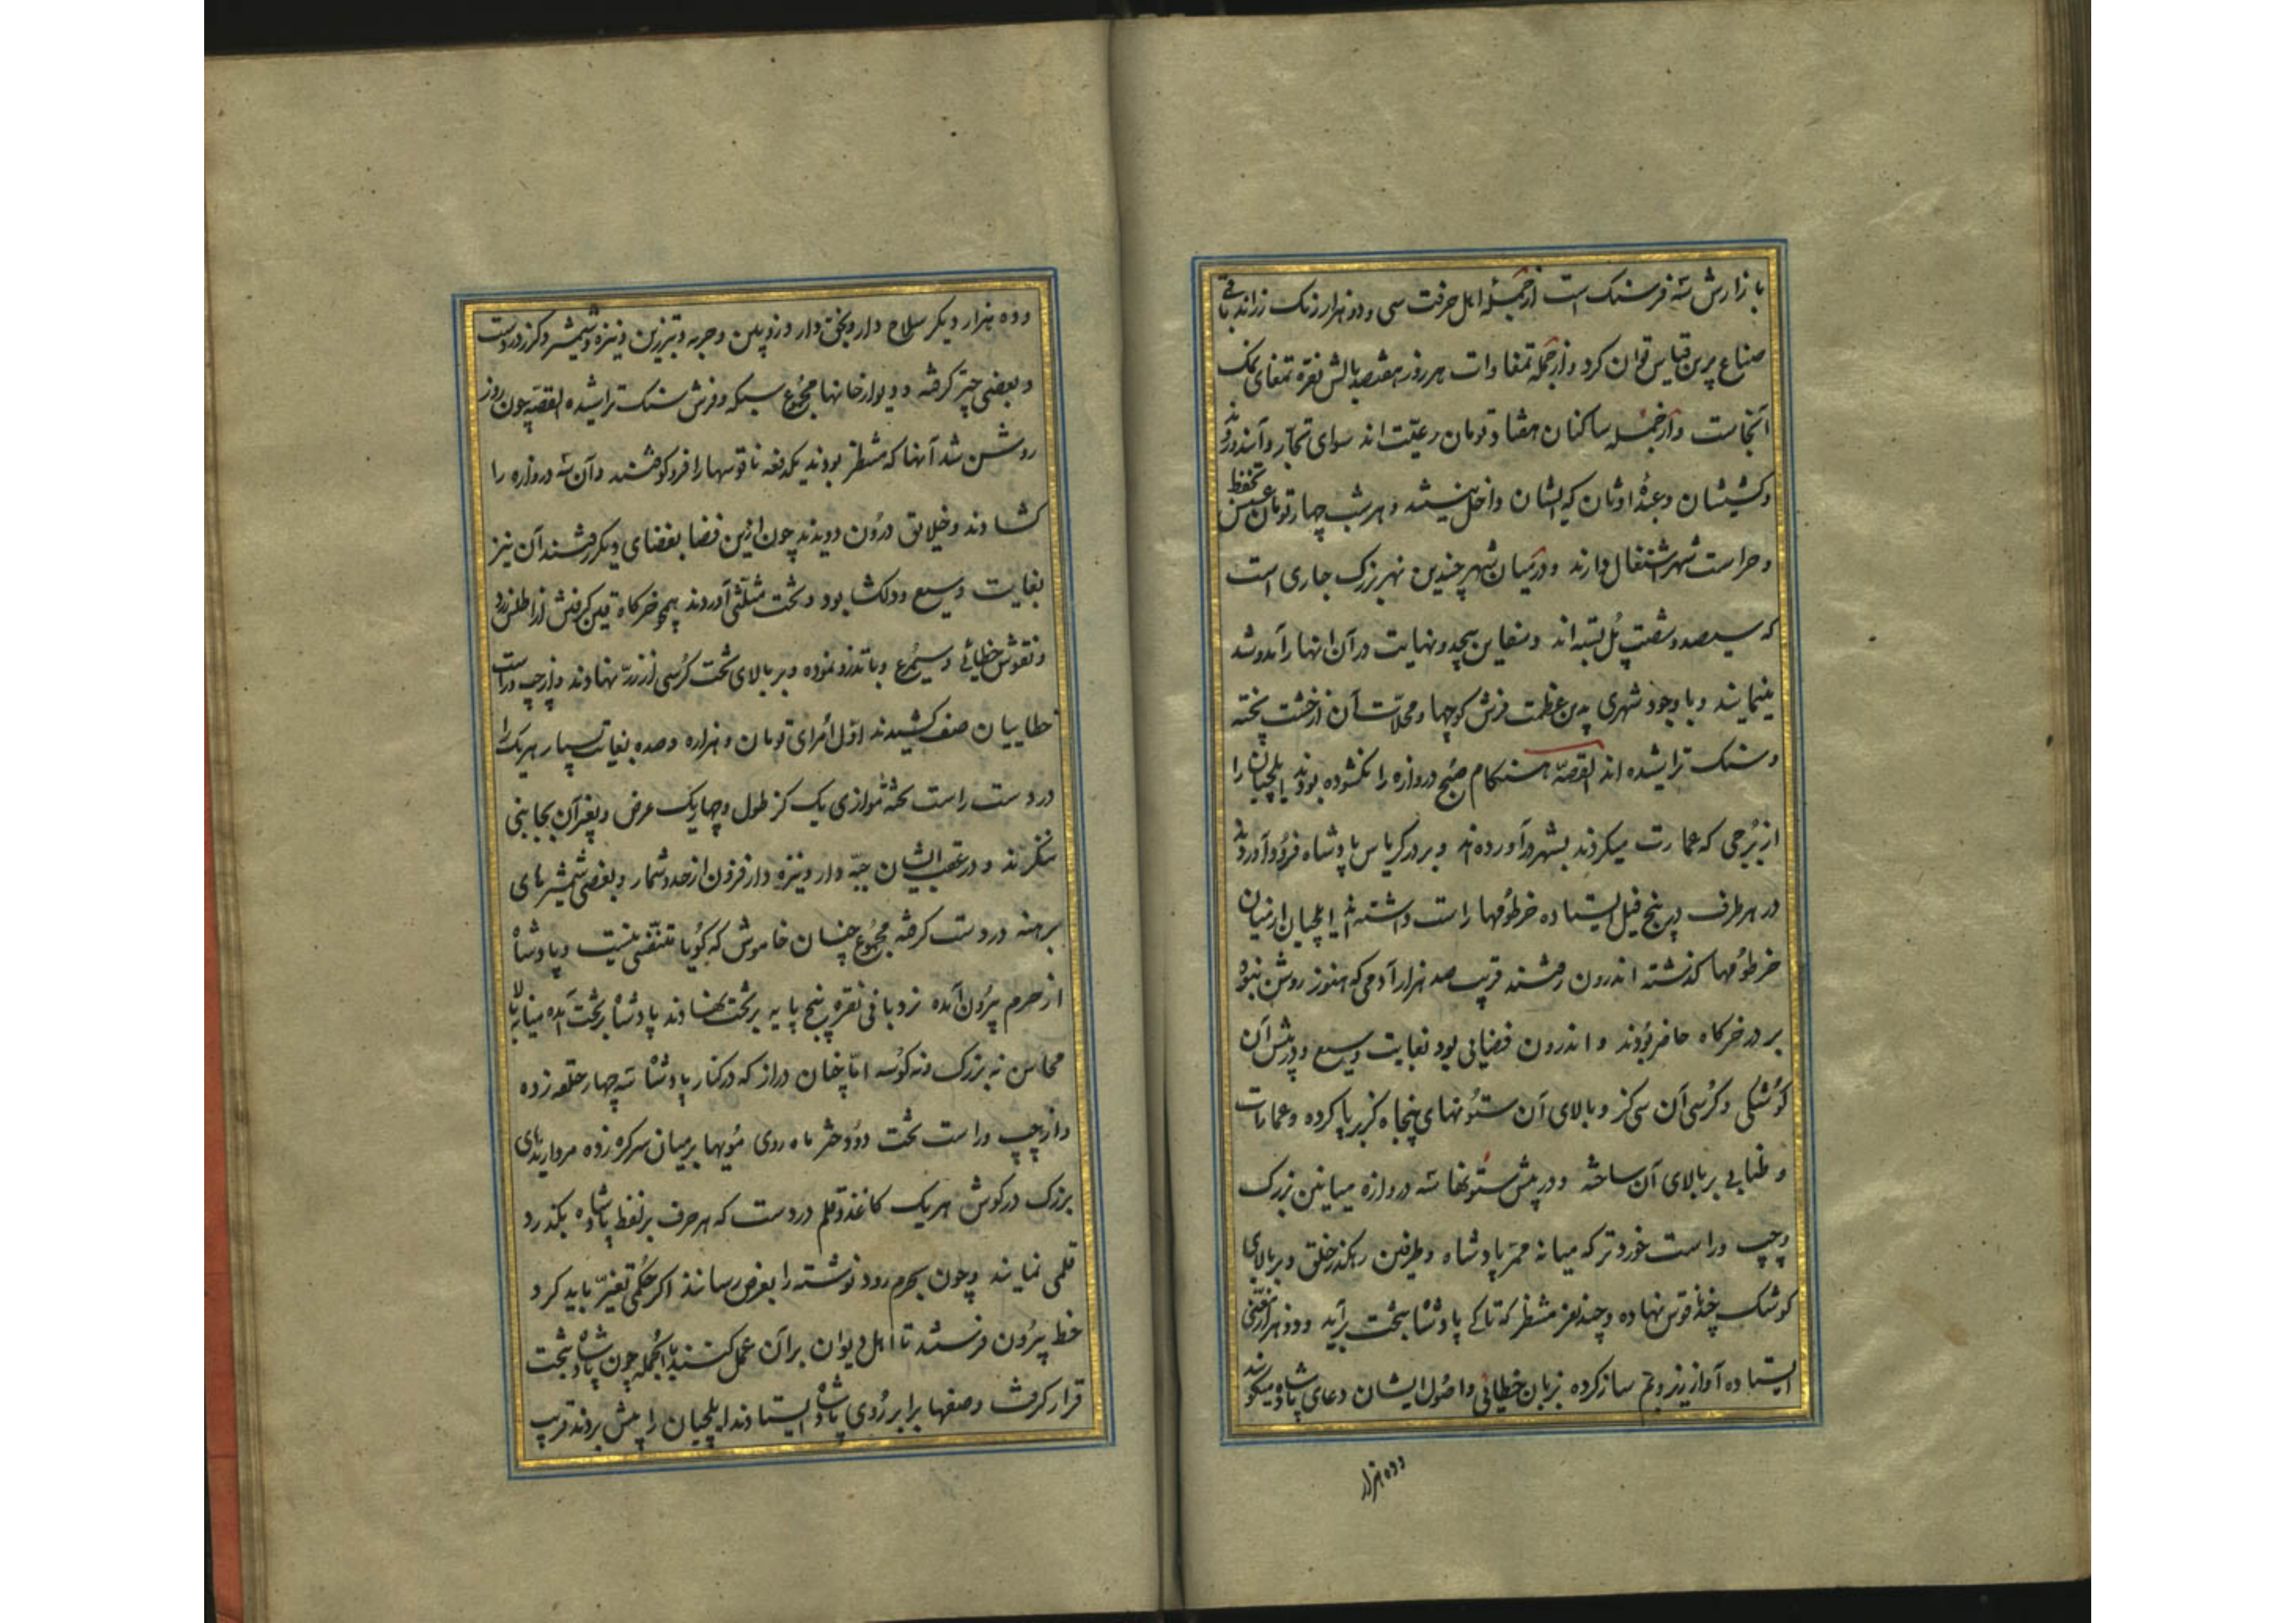 بازارش سه فرسنک است ازجملهٔ اهل حرفت سی و دو هزار رنک رزاند باقی
صناع برین قیاس توان کرد و ازجمله تمغاوات هر روز هفتصد بالش نقره تمغای نمک
آنجاست و ازجمله ساکنان هفتاد تومان رعیّت اند سوای تجّار و آینده و روند
و کشیشان و عبدهٔ اوثان که ایشان داخل نیستند و هر شب چهار تومان عسس تحفظ
و حراست شهر اشتغال دارند و درمیان شهر چندین نهر بزرک جاری است
که سیصد و شصت پُل بسته اند و سفاین بیحد و نهایت در آن انهار آمد و شد
مینمایند و با وجود شهری بدین عظمت فرش کوچها و محلّات آن از خشت پخته
و سنک تراشیده اند القصّه هنکام صبح دروازه را نکشوده بودند ایلچیان را
از بُرجی که عمارت میکردند بشهر درآوردند و بر در کریاس پادشاه فرود آوردند
در هر طرف در پنج فیل ایستاده خرطومها راست داشته اند ایلچیان از میان
خرطومها کذشته اندرون رفتند قریب صد هزار آدمی که هنوز روشن نبود
بر در خرکاه حاضر بودند و اندرون فضایی بود بغایت وسیع و در پیش آن
کوشکی و کرسی آن سی کز و بالای آن ستونهای پنجاه کز برپا کرده و عمارات
و طنابی بر بالای آن ساخته و در پیش ستونها سه دروازه میانین بزرک
و چپ و راست خوردتر که میانه ممرّ پادشاه و طرفین رهکذر خلق و بر بالای
کوشک چند ناقوس نهاده و چند نفر منتظر که تا کے پادشاه بتخت برآید و دو هزار مغنّی
ایستاده آواز زیر و بم ساز کرده بزبان خطائی و اصول ایشان دعای پادشاه میکویند
و ده هزار
و ده هزار دیکر سلاح دار و یخنی دار و زوپین و حربه و تبرزین و نیزه و شمشیر و کرز در دست
و بعضی چتر کرفته و دیوار خانها مجموع سبکه و فرش سنک تراشیده القصّه چون روز
روشن شد آنها که منتظر بودند یکدفعه ناقوسها را فرو کوفتند و آن سه دروازه را
کشادند و خیلایق درون دویدند چون ازین فضا بفضای دیکر رفتند آن نیز
بغایت وسیع و دلکشا بود و تخت مثلّثی آوردند همچو خرکاه قین کرفش از اطلس زرد
و نقوش خطائی و سیمرغ و باتدزو نموده و بر بالای تخت کرسی از زر نهادند و از چپ و راست
خطاییان صف کشیدند اوّل اُمرای تومان و هزاره و صده بغایت بسیار هر یک را
در دست راست تخته موازی یک کز طول و چهار یک عرض و بغیر آن بجایی
ننکرند و در عقب ایشان جبّه دار و نیزه دار فزون از حد و شمار و بعضی شمشیرهای
برهنه در دست کرفته مجموع چنان خاموش که کویا متنفسی نیست و پادشاه
از حرم بیرون آمده نردبانی نقره پنج پایه بر تخت نهادند پادشاه بر تخت آمده میانه بالا
محاسن نه بزرک و نه کوسه امّا چنان دراز که در کنار پادشاه سه چهار حلقه زده
و از چپ و راست تخت دو دختر ماه روی مویها بر میان سر کره زده مرواریدهای
بزرک در کوش هر یک کاغذ و قلم در دست که هر حرف بر لفظ پادشاه بکذرد
قلمی نمایند و چون بحرم رود نوشته را بعرض رسانند اکر حکمی تغیّر باید کرد
خط بیرون فرستند تا اهل دیوان بر آن عمل کنند بالجمله چون پادشاه بتخت
قرار کرفت و صفها برابر روی پادشاه ایستادند ایلچیان را پیش بردند قریب